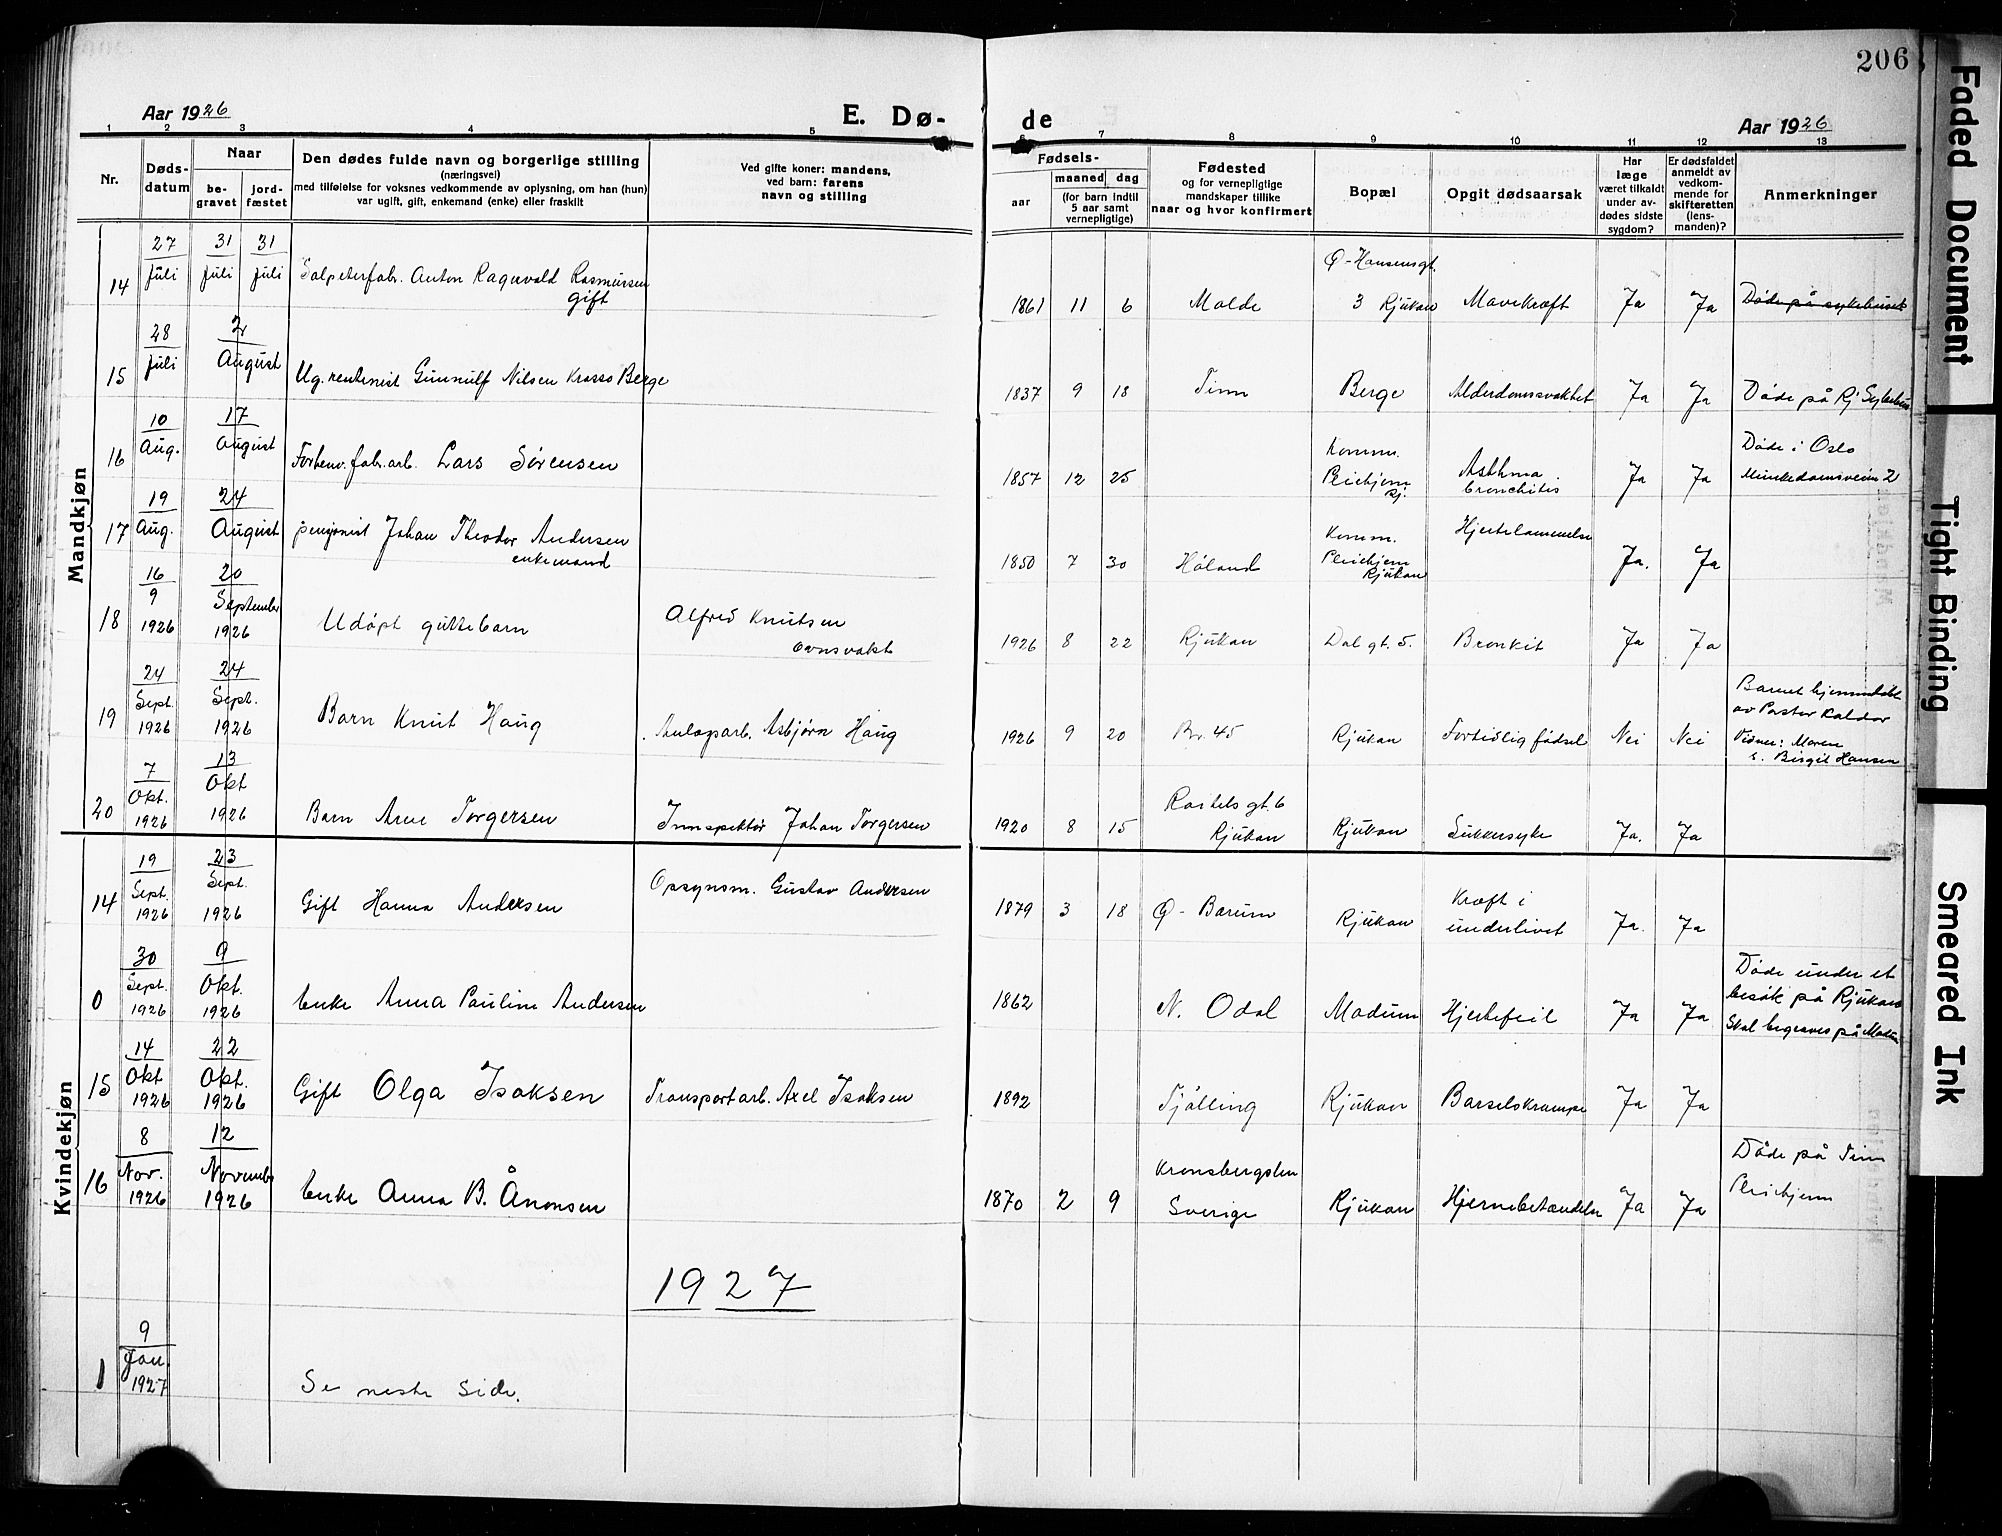 206
Aar 1926
E. Dø-
de
Aar 1926
1 2 3 4 5 6 7 8 9 10 11 12 13
Nr.
Døds-
datum
Naar
be-
gravet
jord-
fæstet
Den dødes fulde navn og borgerlige stilling
(næringsvei)
med tilføielse for voksnes vedkommende av oplysning, om han (hun)
var ugift, gift, enkemand (enke) eller fraskilt
Ved gifte koner: mandens,
ved barn: farens
navn og stilling
Fødsels-
aar
maaned
dag
(for barn indtil
5 aar samt
vernepligtige)
Fødested
og for vernepligtige
mandskaper tillike
naar og hvor konfirmert
Bopæl
Opgit dødsaarsak
Har
læge
været tilkaldt
under av-
dødes sidste
sygdom?
Er dødsfaldet
anmeldt av
vedkom-
mende for
skifteretten
(lens-
manden)?
Anmerkninger
Mandkjøn
14
27
Juli
31
Juli
31
Juli
Salpeterfabr. Anton Ragnvald Rasmussen
gift
1861 11 6
Molde
Ø-Hansensgt.
3 Rjukan
Mavekræft
Ja
Ja
Døde på sykehuset
15
28
Juli
2
August
Ug. rentenist Gunnulf Nilsen Krosso Berge
1837 9 18
Tinn
Berge
Alderdomssvakhet
Ja
Ja
Døde på Rj Sykehus
16
10
Aug.
17
August
Forhenv. fabr. arb. Lars Sørensen
1857 12 25
Komm.
Pleiehjem
Rj.
Asthma
bronchitis
Ja
Ja
Døde i Oslo
Munkedamsveien 2
17
19
Aug.
24
August
pensjonist Johan Theodor Andersen
enkemand
1850 7 30
Høland
Komm.
Pleiehjem
Rjukan
Hjertelammelse
Ja.
Ja
18
16
9
1926
20
September
1926
Udøpt guttebarn
Alfred Knutsen
Ovnsvakt
1926 8 22
Rjukan
Dal gt. 5.
Bronkit
Ja
Ja
19
24
Sept.
1926
24
Sept.
1926
Barn Knut Haug
Anlægsarb. Asbjørn Haug
1926 9 20
Br. 45
Rjukan
Fortidlig fødsel
Nei
Nei
Barnet hjemmedøbt
av Pastor Kaldor
Vidner: Maren
&. Birgit Hansen
20
7
Okt.
1926
13
Okt
1926
Barn Arne Torgersen
Innspektør Johan Torgersen
1920 8 15
gt. 6
Rjukan
Rjukan
Sukkersyke
Ja.
Ja
Kvindekjøn
14
19
Sept.
1926
23
Sept.
1926
Gift Hanna Andersen
Opsynsm. Gustav Andersen
1879 3 18
Ø- Bærum
Rjukan
Kræft i
underlivet
Ja.
Ja
0
30
Sept.
1926
9
Okt.
1926
Enke Anna Pauline Andersen
1862
N. Odal
Modum
Hjertefeil
Ja
Ja
Døde under et
besøk på Rjukan
Skal begraves på Modum
15
14
Okt
1926
22
Okt.
1926
Gift Olga Isaksen
Transportarb. Axel Isaksen
1892
Tjølling
Rjukan
Barselskrampe
Ja
Ja
16
8
Nov.
1926
12
November
1926
Enke Anna B. Ånonsen
1870 2 9
Kronsbergslen
Sverige
Rjukan
Hjernebetændelse
Ja
Ja
Døde på Tinn
Pleiehjem
1927
1
9
Jan.
1927
Se neste side.
Faded Document
Tight Binding
Smeared Ink